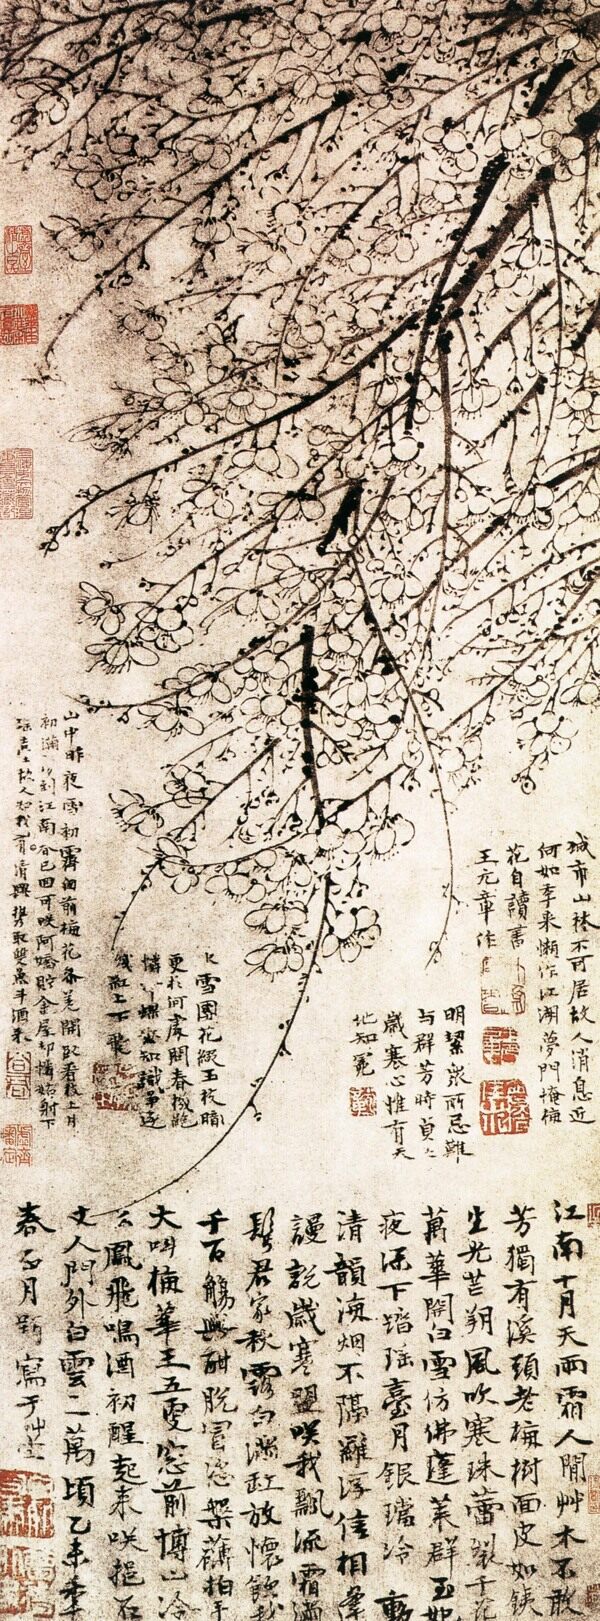 城市山林不可居故人消息近
何如年来懶作江湖夢門掩梅
花自讀書
王元章作
明潔眾所忌難
与群芳時貞貞
歲寒心惟有天
地知冕
大雪團花綴玉枝暗
更於何處開春機
憐
山中昨夜雪初霽囪前梅花開卧看枝上月
初滿江南春已回可咲阿嬌貯金屋却憐姑射下
瑤臺故人知我有清興携取雙魚斗酒来
江南十月天雨霜人間艸木不敢
芳獨有溪頭老梅樹面皮如鉄
生光芒朔風吹寒珠蕾裂千花
萬華開白雪仿佛蓬萊群玉妃
夜深下踏瑤臺月銀璫冷動
清韻海烟不隔羅浮信相逢
謾說歲寒盟咲我飄流霜滿
鬂君家秋露白滿缸放懷飲我
千百觴興酣脫冒恣槃薄拍手
大叫梅華王五更窓前博山冷
么鳳飛鳴酒初醒起来咲挹石
丈人門外白雲二萬頃乙未年
春正月題寫于艸堂